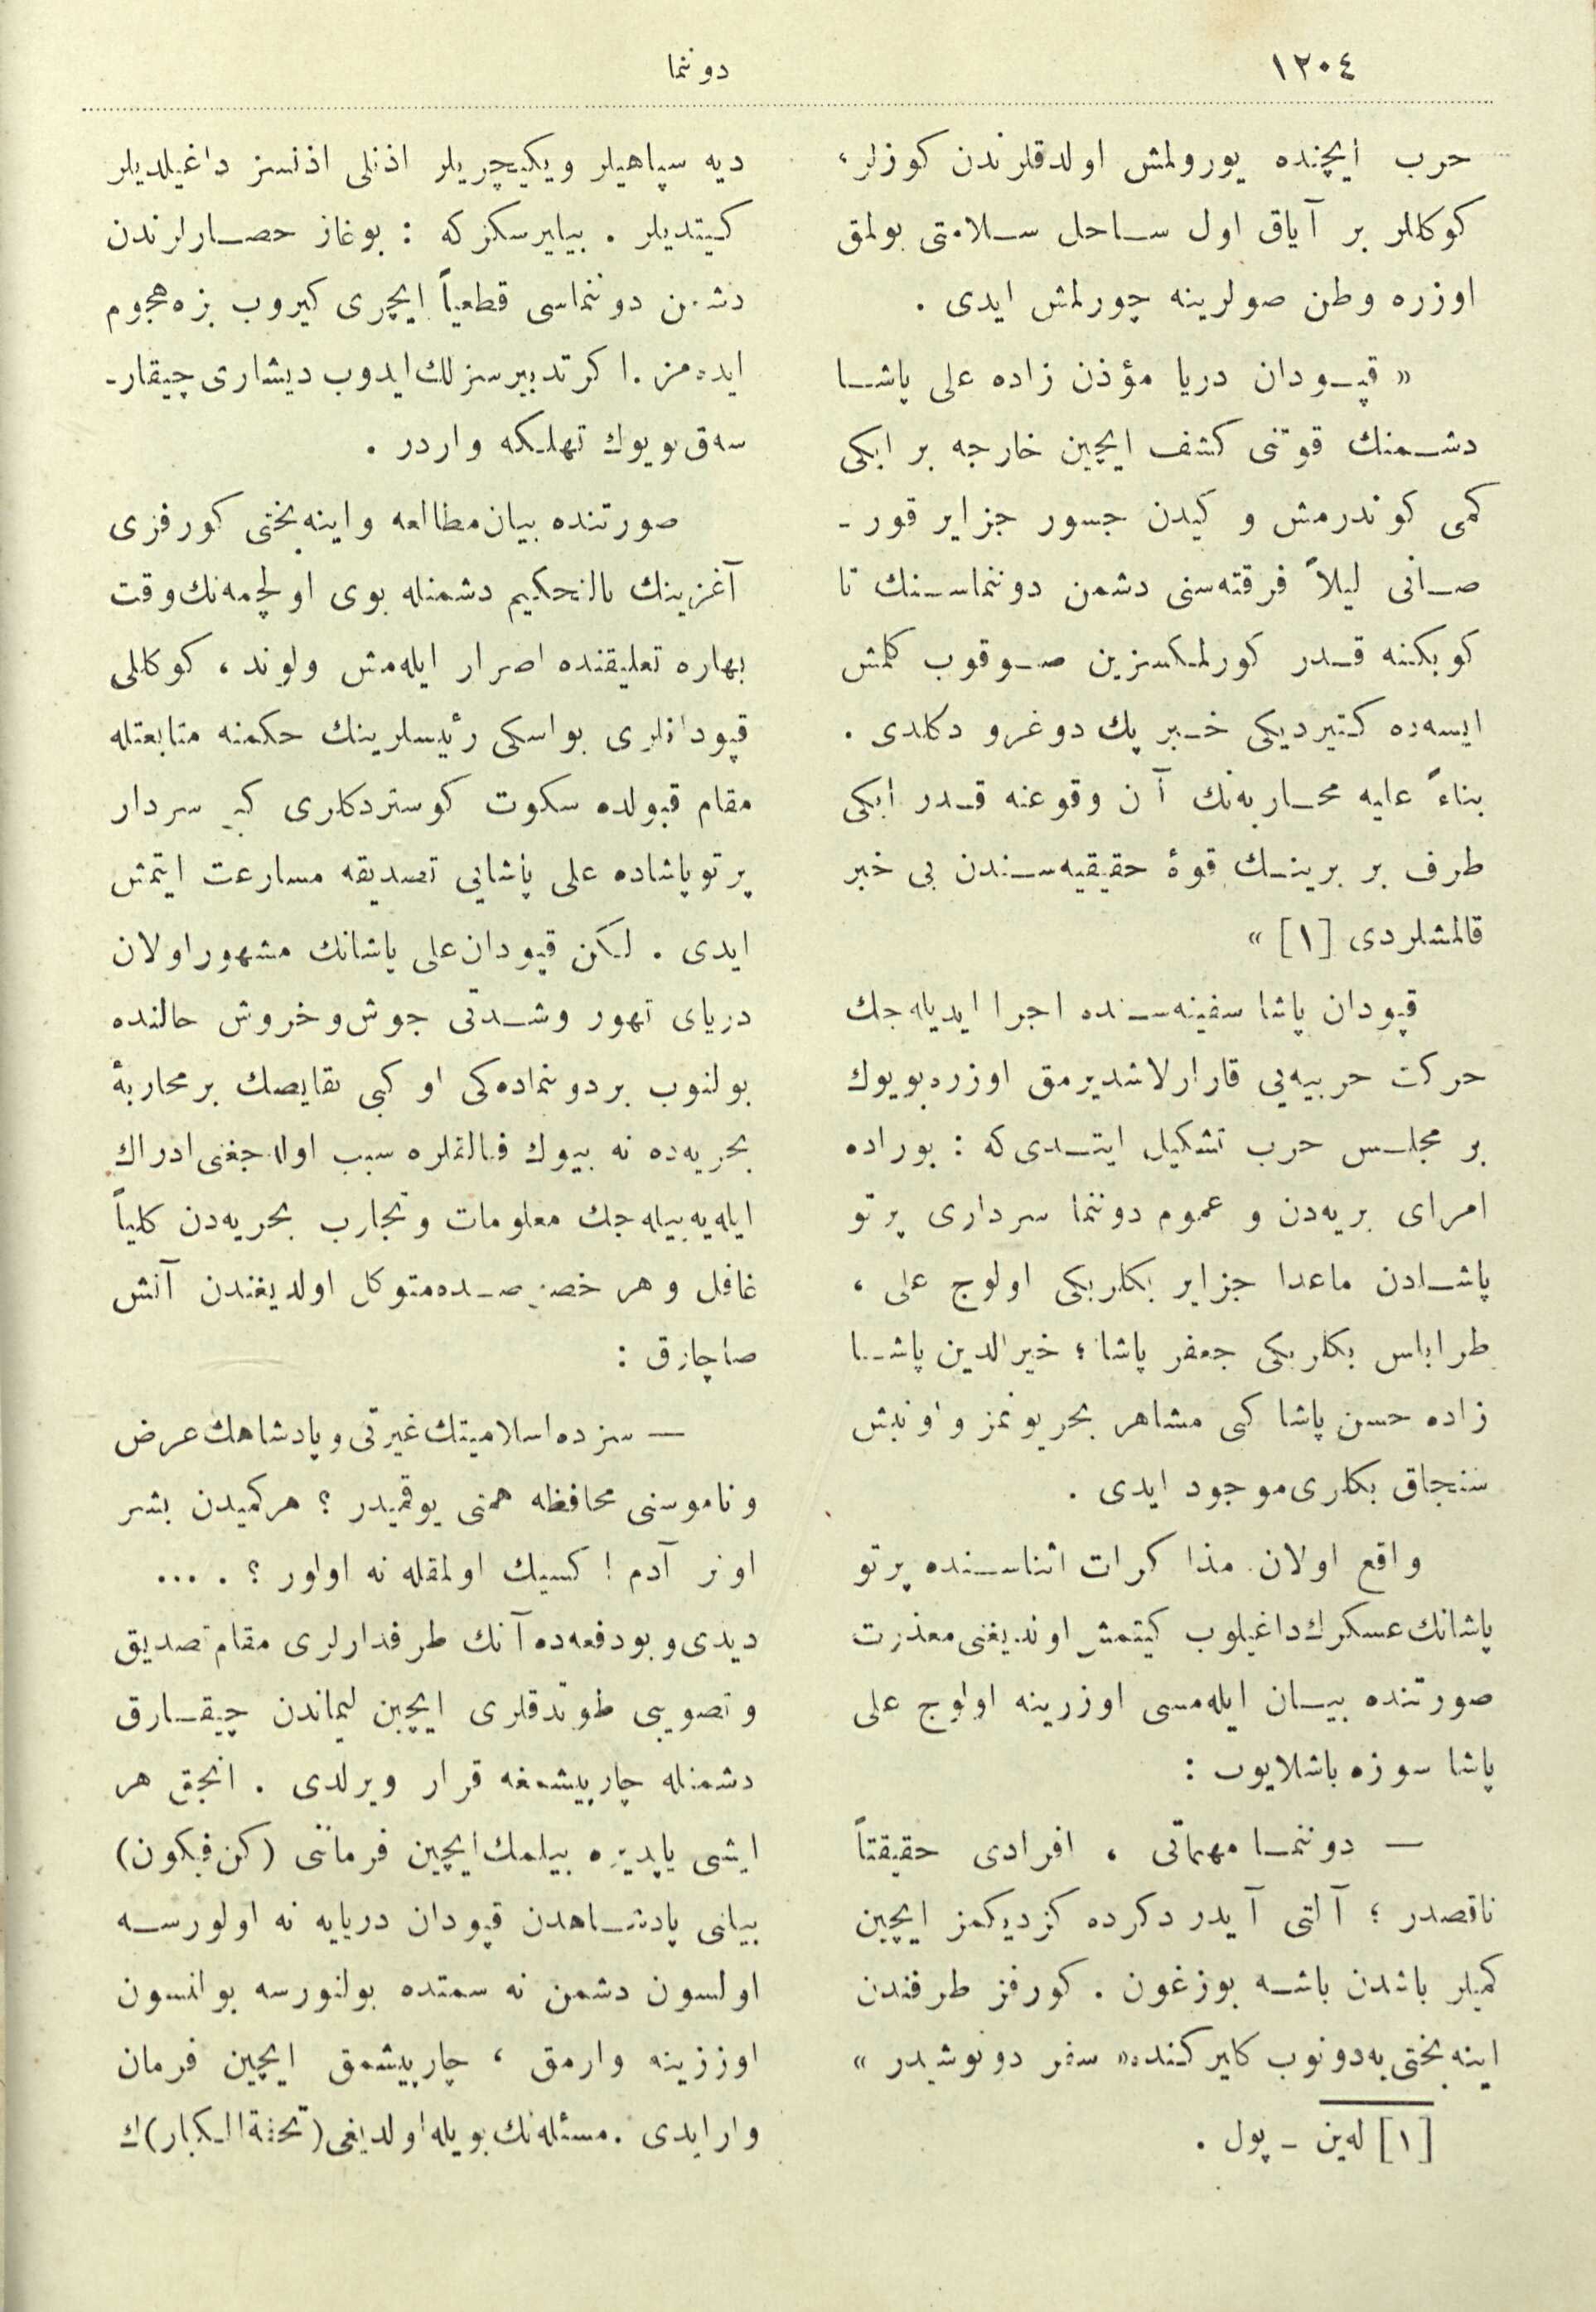 ١٢٠٤
دوننما
حرب ايچنده يورولمش اولدقلرندن كوزلر،
كوكللر بر آياق اول ساحل سلامتى بولمق
اوزره وطن صولرينه چورلمش ايدى .
« قپودان دريا مؤذن زاده على پاشا
دشمنك قوتنى كشف ايچين خارجه بر ايكى
كمى كوندرمش و كيدن جسور جزاير قور ـ
صانى ليلاً فرقته‌سنى دشمن دوننماسنك تا
كوبكنه قدر كورلمكسزين صوقوب كلمش
ايسه‌ده كتيرديكى خبر پك دوغرو دكلدى .
بناءً عليه محاربه‌نك آن وقوعنه قدر ايكى
طرف بر برينك قوۀ حقيقيه‌سندن بى خبر
قالمشلردى [١] »
قپودان پاشا سفينه‌سنده اجرا ايديله‌جك
حركت حربيه‌يى قرارلاشديرمق اوزره بويوك
بر مجلس حرب تشكيل ايتدى كه : بوراده
امراى بريه‌دن و عموم دوننما سردارى پرتو
پاشادن ماعدا جزاير بكلربكى اولوج على ،
طرابلس بكلربكى جعفر پاشا ؛ خيرالدين پاشا
زاده حسن پاشا كبى مشاهر بحريونمز و اونبش
سنجاق بكلرى موجود ايدى .
واقع اولان مذاكرات اثناسنده پرتو
پاشانك عسكرك داغيلوب كيتمش اولديغنى معذرت
صورتنده بيان ايله‌مسى اوزرينه اولوج على
پاشا سوزه باشلايوب :
— دوننما مهماتى ، افرادى حقيقتاً
ناقصدر ؛ آلتى آيدر دكرده كزديكمز ايچين
كميلر باشدن باشه بوزغون . كورفز طرفندن
اينه بختى‌يه دونوب كلير كنده « سفر دونوشيدر »
[١] له‌ين ـ پول .
ديه سپاهيلر و يكيچريلر اذنلى اذنسز داغيلديلر
كيتديلر . بيليرسكز كه : بوغاز حصارلرندن
دشمن دوننماسى قطعياً ايچرى كيروب بزه هجوم
ايده‌مز . اكر تدبيرسزلك ايدوب ديشارى چيقار ـ
سه‌ق بويوك تهلكه واردر .
صورتنده بيان مطالعه و اينه بختى كورفزى
آغزينك بالتحكيم دشمنله بوى اولچمه‌نك وقت
بهاره تعليقنده اصرار ايله‌مش ولوند ، كوكللى
قپودانلرى بو اسكى رئيسلرينك حكمنه متابعتله
مقام قبولده سكوت كوستردكلرى كبى سردار
پرتو پاشاده على پاشايى تصديقه مسارعت ايتمش
ايدى . لكن قپودان على پاشانك مشهور اولان
درياى تهور و شدتى جوش و خروش حالنده
بولنوب بر دوننماده‌كى او كبى نقايصك بر محاربۀ
بحريه‌ده نه بيوك فنالقلره سبب اوله‌جغنى ادراك
ايله‌يه‌بيله‌جك معلومات و تجارب بحريه‌دن كلياً
غافل و هر خصوصده متوكل اولديغندن آتش
صاچارق :
— سزده اسلاميتك غيرتى و پادشاهك عرض
و ناموسنى محافظه همتى يوقميدر ؟ هر كميدن بشر
اونر آدم ! كسيك اولمقله نه اولور ؟ . ...
ديدى و بو دفعه‌ده آنك طرفدارلرى مقام تصديق
و تصويبى طوتدقلرى ايچين ليماندن چيقارق
دشمنله چارپيشمغه قرار ويرلدى . انجق هر
ايشى ياپديره بيلمك ايچين فرماننى (كن فيكون)
بيلنى پادشاهدن قپودان دريايه نه اولورسه
اولسون دشمن نه سمتده بولنورسه بولنسون
اوزرينه وارمق ، چارپيشمق ايچين فرمان
وار ايدى . مسئله‌نك بويله اولديغى (تحفةالكبار) ك